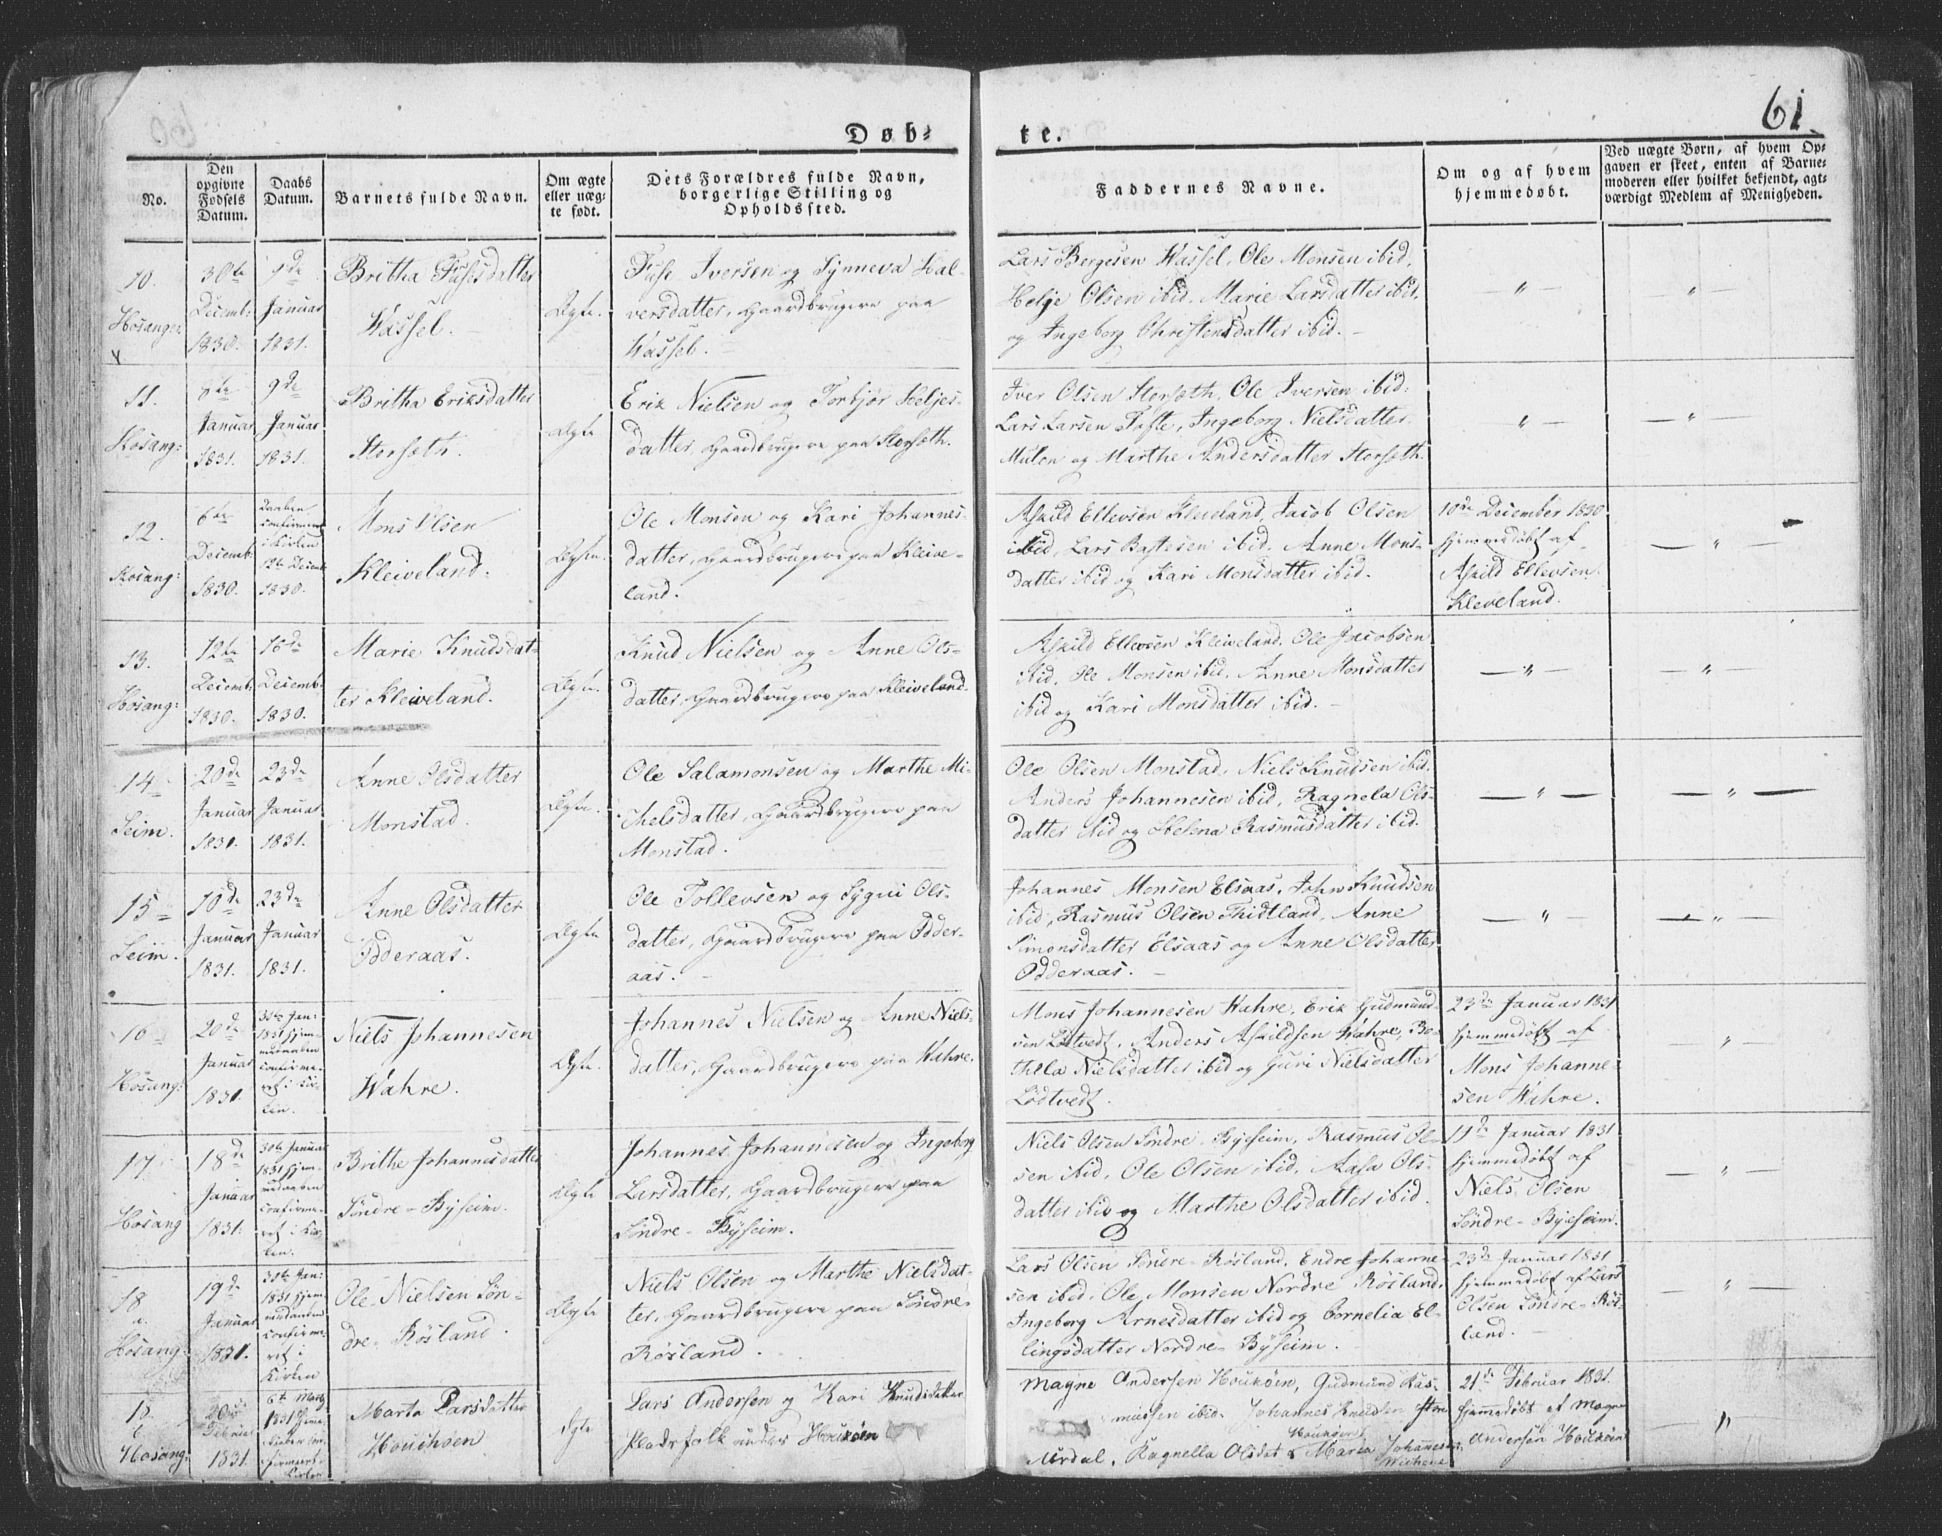 Døb-
te.
61.
No.
Den
opgivne
Fødsels
Datum.
Daabs
Datum.
Barnets fulde Navn.
Om ægte
eller uæg-
te født.
Dets Forældres fulde Navn,
borgerlige Stilling og
Opholdssted.
Faddernes Navne.
Om og af hvem
hjemmedøbt.
Ved uægte Børn, af hvem Op-
gaven er skeet, enten af Barne-
moderen eller hvilket bekjendt, agt-
værdigt Medlem af Menigheden.
10.
Hosanger
30te
Decemb:
1830.
9de
Januar
1831.
Britha Fusesdatter
Wassel.
Ægte.
Fuse Iversen og Synneva Hal-
versdatter, Gaardbrugere paa
Wassel.
Lars Børgesen Wassel, Ole Monsen ibid,
Helje Olsen ibid, Marie Larsdatter ibid,
og Ingeborg Christensdatter ibid.
— " —
— " —
11.
Hosang:
8de
Januar
1831.
9de
Januar
1831.
Britha Eriksdatter
Storsæth.
Ægte
Erik Nielsen og Torbjør Heljes-
datter, Gaardbrugere paa Storsæth.
Iver Olsen Storsæth, Ole Iversen ibid:
Lars Larsen Tofte, Ingeborg Nielsdatter
Mulen og Marthe Andersdatter Storsæth.
— " —
— " —
12.
Hosang:
6te
Decemb:
1830.
Daaben
confirmeret
i Kirken
Decemb
1830.
Mons Olsen
Kleiveland.
Ægte.
Ole Monsen og Kari Johannes-
datter, Gaardbrugere paa Kleive-
land.
Askild Ellevsen Kleiveland, Jacob Olsen
ibid, Lars Bastesen ibid, Anne Mons-
datter ibid og Kari Monsdatter ibid.
10de December 1830
hjemmedøbt af
Askild Ellevsen
Kleveland.
— " —
13.
Hosang:
12te
Decemb:
1830.
16de
Decemb:
1830.
Marie Knudsdat-
ter Kleiveland.
Ægte.
Knud Nielsen og Anne Ols-
datter, Gaardbrugere paa Kleiveland.
Askild Ellevsen Kleiveland, Ole Jacobsen
ibid, Ole Monsen ibid, Anne Monsdatter
ibid og Kari Monsdatter ibid.
— " —
— " —
14
Seim.
20de
Januar
1831.
23de
Januar
1831.
Anne Olsdatter
Monstad.
Ægte.
Ole Salamonsen og Marthe Mi-
chelsdatter, Gaardbrugere paa
Monstad.
Ole Olsen Monstad, Niels Knudsen ibid,
Anders Johannesen ibid, Ragnela Ols-
datter ibid og Helena Rasmusdatter ibid.
— " —
— " —
15
Seim.
10de
Januar
1831.
23de
Januar
1831.
Anne Olsdatter
Odderaas.
Ægte
Ole Tollevsen og Sygni Ols-
datter, Gaardbrugere paa Odder-
aas.
Johannes Monsen Elsaas, John Knudsen
ibid, Rasmus Olsen Thidtland, Anne
Simonsdatter Elsaas og Anne Olsdatter
Odderaas.
— " —
— " —
16
Hosang:
20de
Januar
1831.
30te Jan:
1831 hjem-
medaaben
confirme-
ret i Kir-
ken.
Niels Johannesen
Wahre.
Ægte.
Johannes Nielsen og Anne Niels-
datter, Gaardbrugere paa Wahre.
Mons Johannesen Wahre, Erik Gudmund-
sen Lödtvedt, Anders Askildsen Wahre, Be-
thela Nielsdatter ibid og Guri Nielsdatter
Lödtvedt.
23de Januar 1831
hjemmedøbt af
Mons Johanne-
sen Wahre.
"
17.
Hosang
18de
Januar
1831.
30te Januar
1831 hjem-
medaaben
confirme-
ret i Kir-
ken.
Brithe Johannesdatter
Söndre-Byseim.
Ægte
Johannes Johannesen og Ingeborg
Larsdatter, Gaardbrugere paa
Söndre-Byseim.
Niels Olsen Söndre-Byeseim, Rasmus Ol-
sen ibid, Ole Olsen ibid, Aasa Ols-
datter ibid og Marthe Olsdatter ibid.
Januar 1831
hjemmedøbt af
Niels Olsen
Söndre-Byeseim.
— " —
18
a.
Hosang:
19de
Januar
1831.
30te Jan:
1831 hjem-
medaaben
confirme-
ret i
Kirken
Ole Nielsen Sön-
dre-Rösland.
Ægte
Niels Olsen og Marthe Nielsdat-
ter, Gaardbrugere paa Söndre-
Rösland.
Lars Olsen Söndre-Rösland, Endre Johanne-
sen ibid, Ole Monsen Nordre Rösland,
Ingeborg Arnesdatter ibid og Cornelia El-
lingsdatter Nordre-Byseim.
23de Januar 1831
hjemmedøbt af Lars
Olsen Söndre-Rös-
land.
— " —
Hosang:
1831
6te Marts
1831
Kirken
Marta Larsdatter
Ægte
Lars Andersen og Kari Knudsdatter
Pladsfolk under Houköen
Magne Andersen Houköen, Gudmund Ras-
mussen ibid. Johannes Knudsen
Mirdal, Ragnella Olsdat & Maria Johannesd.
21de Februar 1831
hjemmedøbt af Magne
Andersen Houköen
— " —